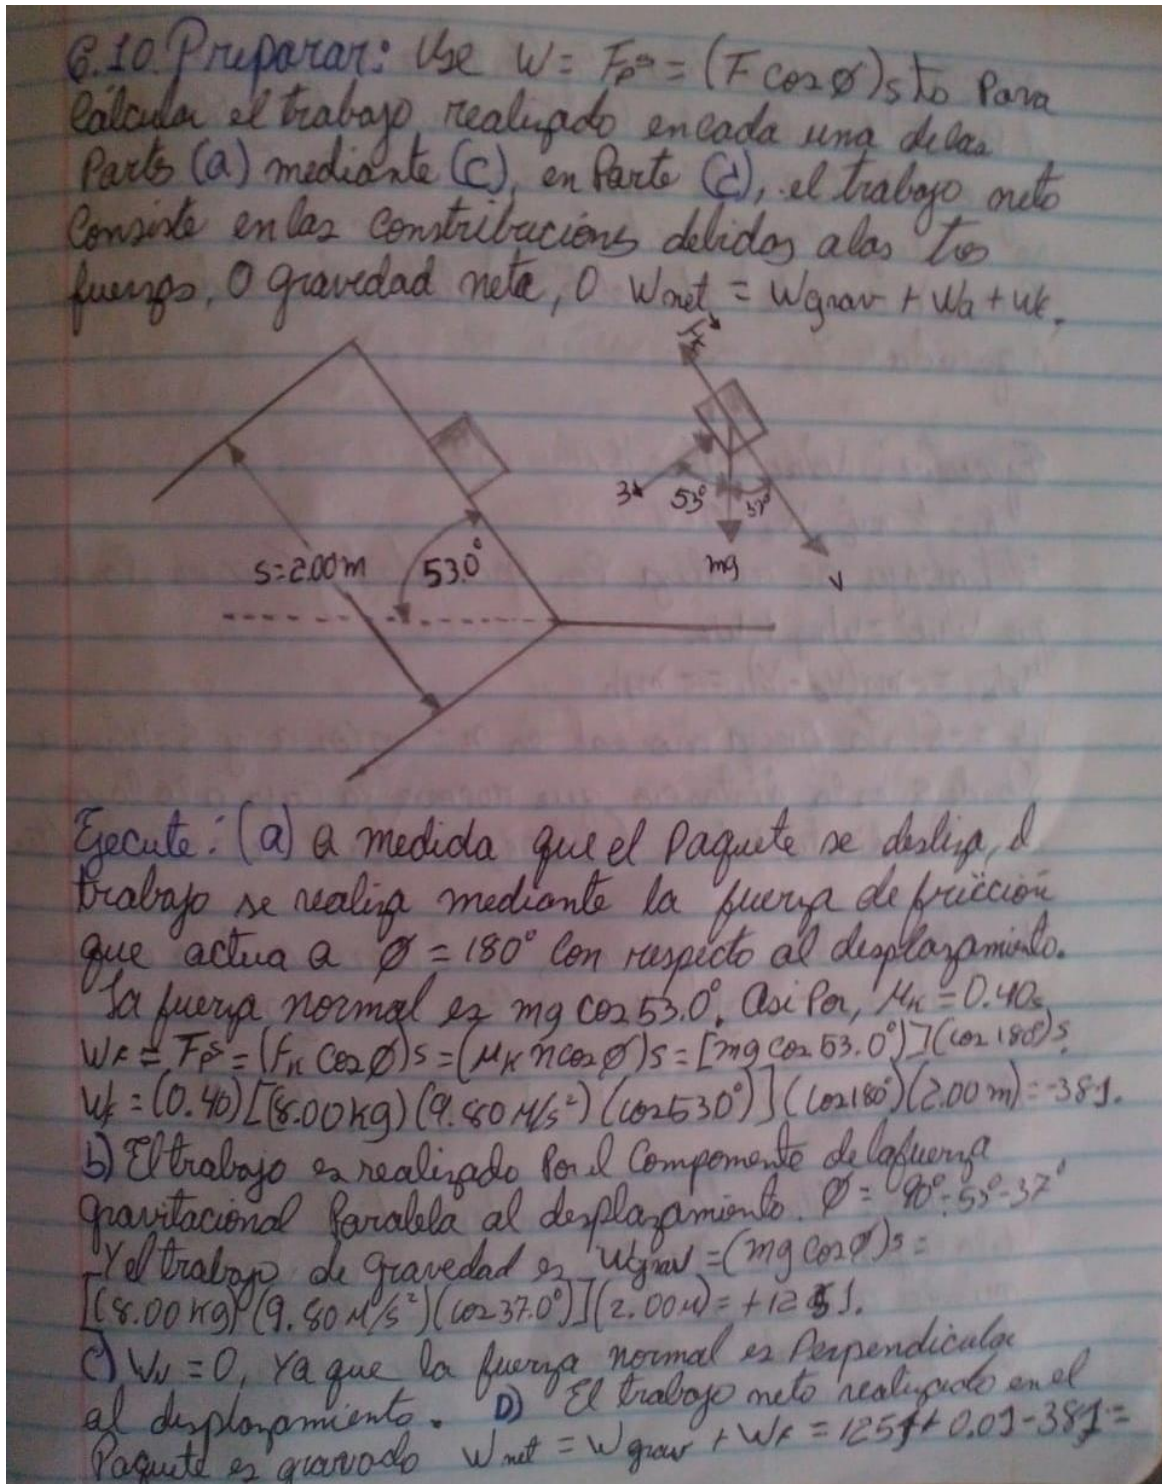 6.10. Preparar: Use W = Fps = (F cos ø)s to Para
Cálcular el trabajo realizado encada una delas
Parts (a) mediante (c), en Parte (d), el trabajo neto
Consiste en las constribucións debidas alas tres
fuerzas, O gravedad neta, O Wnet = Wgrav + Wn + Wk.
Fk
3
53°
37°
mg
v
S=2.00m
53.0°
Ejecute: (a) a medida que el Paquete se desliza, el
trabajo se realiza mediante la fuerza de fricción
que actua a ø = 180° Con respecto al desplazamiento.
La fuerza normal es mg cos 53.0°. Asi Por, μk = 0.40s
WF = Fps = (Fk Cos ø)s = (μk n cos ø)s = [mg cos 53.0°)](cos 180°)s.
Wf = (0.40)[(8.00kg)(9.80 M/s²)(cos530°)](cos180°)(2.00 m) = -38J.
b) El trabajo es realizado Por el Componente de lafuerza
gravitacional Paralela al desplazamiento. ø = 90°-53°-37°
Y el trabajo de gravedad es Wgrav = (mg cos ø)s =
[(8.00 kg)(9.80 M/s²)(cos 37.0°)](2.00 m) = +125J.
C) Wn = 0, Ya que la fuerza normal es Perpendicular
al desplazamiento. D) El trabajo neto realizado en el
Paquete es gravado Wnet = Wgrav + WF = 125J + 0.0J - 38J =